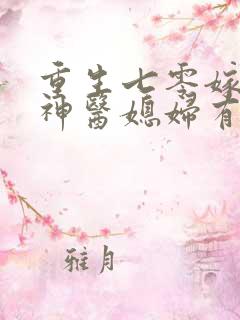 重生七零嫁
神醫媳婦有
雅月